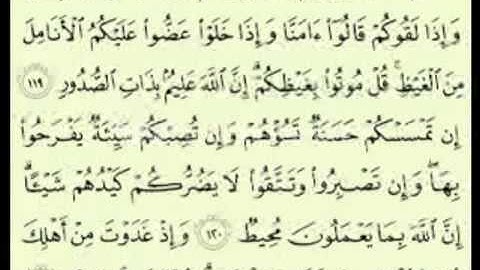 وَإِذَا لَقُوكُمْ قَالُوٓا۟ ءَامَنَّا وَإِذَا خَلَوْا۟ عَضُّوا۟ عَلَيْكُمُ ٱلْأَنَامِلَ
مِنَ ٱلْغَيْظِ ۚ قُلْ مُوتُوا۟ بِغَيْظِكُمْ ۗ إِنَّ ٱللَّهَ عَلِيمٌۢ بِذَاتِ ٱلصُّدُورِ ١١٩
إِن تَمْسَسْكُمْ حَسَنَةٌ تَسُؤْهُمْ وَإِن تُصِبْكُمْ سَيِّئَةٌ يَفْرَحُوا۟
بِهَا ۖ وَإِن تَصْبِرُوا۟ وَتَتَّقُوا۟ لَا يَضُرُّكُمْ كَيْدُهُمْ شَيْـًٔا ۗ
إِنَّ ٱللَّهَ بِمَا يَعْمَلُونَ مُحِيطٌ ١٢٠ وَإِذْ غَدَوْتَ مِنْ أَهْلِكَ